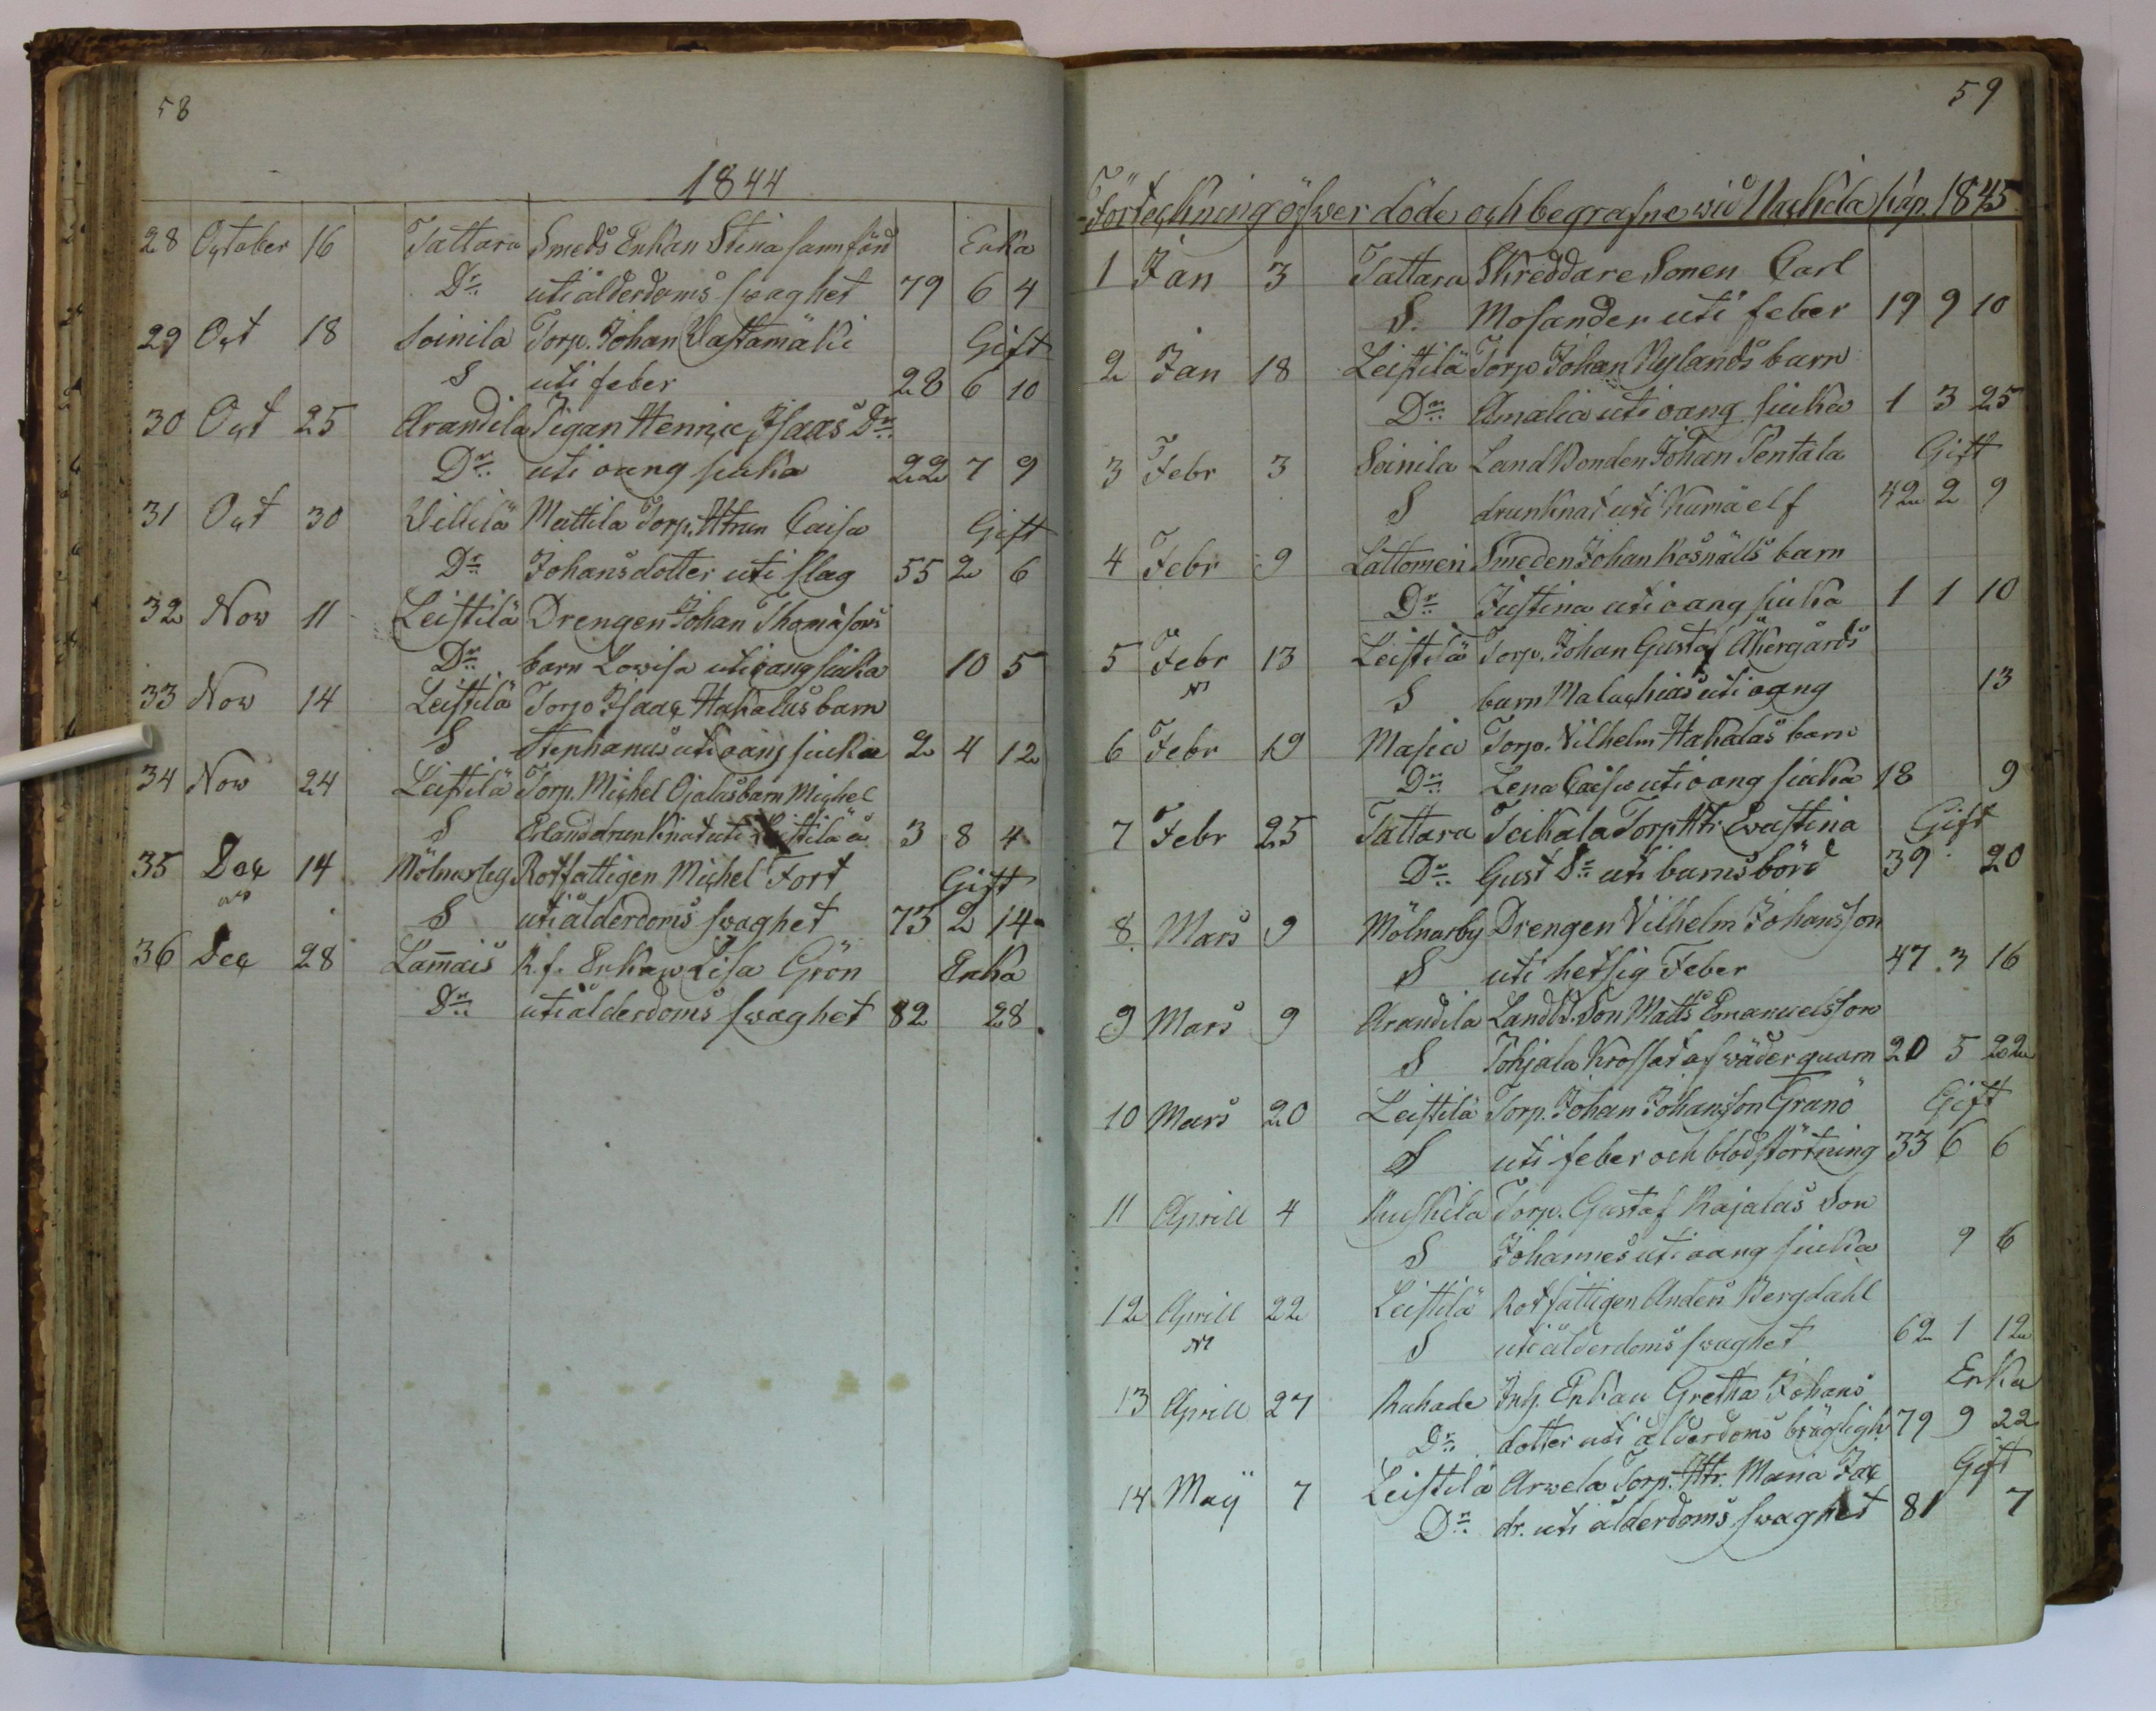 58
1844
28 October 16 Tattara Smeds Enkan Stina Enka
Dr: uti ålderdoms swaghet 79 6 4
29 Oct 18 Soinila Torp. Johan Wastamäki Gift
S uti feber 28 6 10
30 Oct 25 Arandila Pigan Henric Isaas Dr:
Dr: uti oäng siuka 22 7 9
31 Oct 30 Villilä Mattila Torp. Htrun Caisa Gift
Dr: Johansdotter uti slag 55 2 6
32 Nov 11 Leistilä Drengen Johan Thomasons
Dr: barn Lowisa uti oang siuka 10 5
33 Nov 14 Leistilä Torp Isaac Hakalas barn
S Stephanus uti oang siuka 2 4 12
34 Nov 24 Leistilä Torp. Michel Ojalas barn Michel
S Erland drunknat uti Leistilä å 3 8 4
35 Dec 14 Mölnarby Rotfattigen Michel Fort Gift
S uti ålderdoms swaghet 73 2 14
36 Dec 28 Lam̄ais R.f. Enkan Lisa Grön Enka
Dr: uti ålderdoms swaghet 82 28
59
Förtechning öfwer döde och begrafne wid Nackila kap. 1845
1 Jan 3 Tattara Skreddare Sonen Carl
S. Mosander uti feber 19 9 10
2 Jan 18 Leistilä Torp Johan Nylands barn
Dr: Amalia uti oang siuka 1 3 25
3 Febr 3 Soinila LandBonden Johan Pentala Gift
S drunknat uti Kumå elf 42 2 9
4 Febr 9 Lattomeri Smeden Johan Rosnälls barn
Dr: Justina uti oang siuka 1 1 10
5 Febr 13 Leistilä Torp. Johan Gustaf Åkergårds
S barn Malachias uti oang 13
6 Febr 19 Masia Torp. Vilhelm Hakalas barn
Dr: Lena Caisa uti oang siuka 18 9
7 Febr 25 Tattara Torp Htr. Ewastina Gift
Dr: Gust Dr: uti barnsbörd 39 20
8 Mars 9 Mölnarby Drengen Vilhelm Johansson
S uti hetsig Feber 47 3 16
9 Mars 9 Arandila LandB. Son Matts Emanuelsson
S Pohjala Krossat af wäderquarn 20 5 22
10 Mars 20 Leistilä Torp. Johan Johansson Granö Gift
S uti feber och blodstörtning 33 6 6
11 Aprill 4 Torp. Gustaf Rajalas Son
S Johannes uti oang siuka 9 6
12 Aprill 22 Leistilä Rotfattigen Anders Bergdahl
S uti ålderdoms swaghet 62 1 12
13 Aprill 27 Ruhade Inh. Enkan Gretha Johans Enka
Dr: dotter uti ålderdoms bräcligh 79 9 22
14 May 7 Leistilä Arwela Torp. Htr. Maria Jac Gift
Dr: dr. uti ålderdoms swaghet 81 7